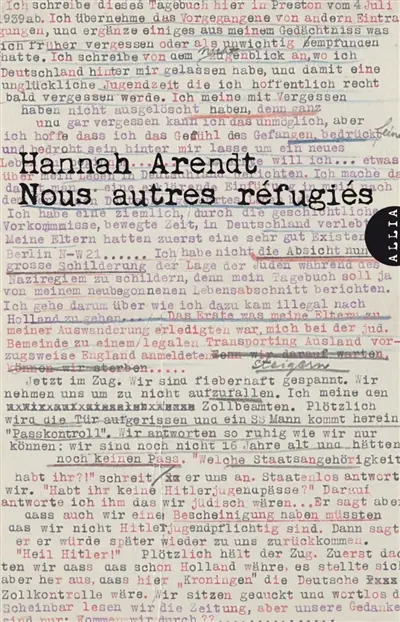 Ich schreibe dieses Tagebuch hier in Preston vom 4 Juli
1939ab. Ich übernehme das Vorgegangene von andern Eintra
gungen, und ergänze einiges aus meinem Gedächtniss was
ich früher vergessen oder als unwichtig empfunden
hatte. Ich schreibe von dem Augenblick an, wo ich
Deutschland hinter mir gelassen habe, und damit eine
unglückliche Jugendzeit die ich hoffentlich recht
bald vergessen werde. Ich meine mit Vergessen
haben nicht ausgelöscht haben, denn ganz
und gar vergessen kann ich das unmöglich, aber
ich hoffe dass ich das Gefühl des Gefangen, bedrückt
und bedroht sein hinter mir lasse um ein neues
will ich... etwas
Hannah Arendt
Nous autres réfugiés
ALLIA
Ich habe eine ziemlich, durch die geschichtliche
Vorkommnisse, bewegte Zeit, in Deutschland verlebt
Meine Eltern hatten zuerst eine sehr gut Existen
Berlin N-W21...... Ich habe nicht die Absicht nun
grosse Schilderung der Lage der Juden während des
Naziregiem zu schildern, denn mein Tagebuch soll ja
von meinem neubegonnenen Lebensabschnitt berichten.
Ich gehe darum über wie ich dazu kam illegal nach
Holland zu gehen..... Das Erste was meine Eltern zu
meiner Auswanderung erledigten war, mich bei der jüd.
Gemeinde zu einem legalen Transporting Ausland vor-
zugsweise England anmeldeten. Wenn wir darauf warten,
können wir sterben......
steigern
Jetzt im Zug. Wir sind fieberhaft gespannt. Wir
nehmen uns um zu nicht aufzufallen. Ich meine den
Zollbeamten. Plötzlich
wird die Tür aufgerissen und ein SS Mann kommt herein
"Passkontroll". Wir antworten so ruhig wie wir nur
können: wir sind noch nicht 16 Jahre alt und hätten
noch keinen Pass. "Welche Staatsangehörigkeit
habt ihr?!" schreit er uns an. Staatenlos antwort
wir. "Habt ihr keine Hitlerjugendpässe?" Darauf
antworte ich ihm das wir jüdisch wären...Er sagt aber
dass auch wir eine Bescheinigung haben müssten
das wir nicht Hitlerjugendpflichtig sind. Dann sagt
er er würde später wieder zu uns zurückkommen.
"Heil Hitler!" Plötzlich hält der Zug. Zuerst dac
ten wir dass das schon Holland währe, es stellte sic
aber her aus, dass hier "Kroningen" die Deutsche
Zollkontrolle wäre. Wir sitzen geduckt und wortlos d
Scheinbar lesen wir die Zeitung, aber unsere Gedanke
sind nur: Kommen wir durch ??